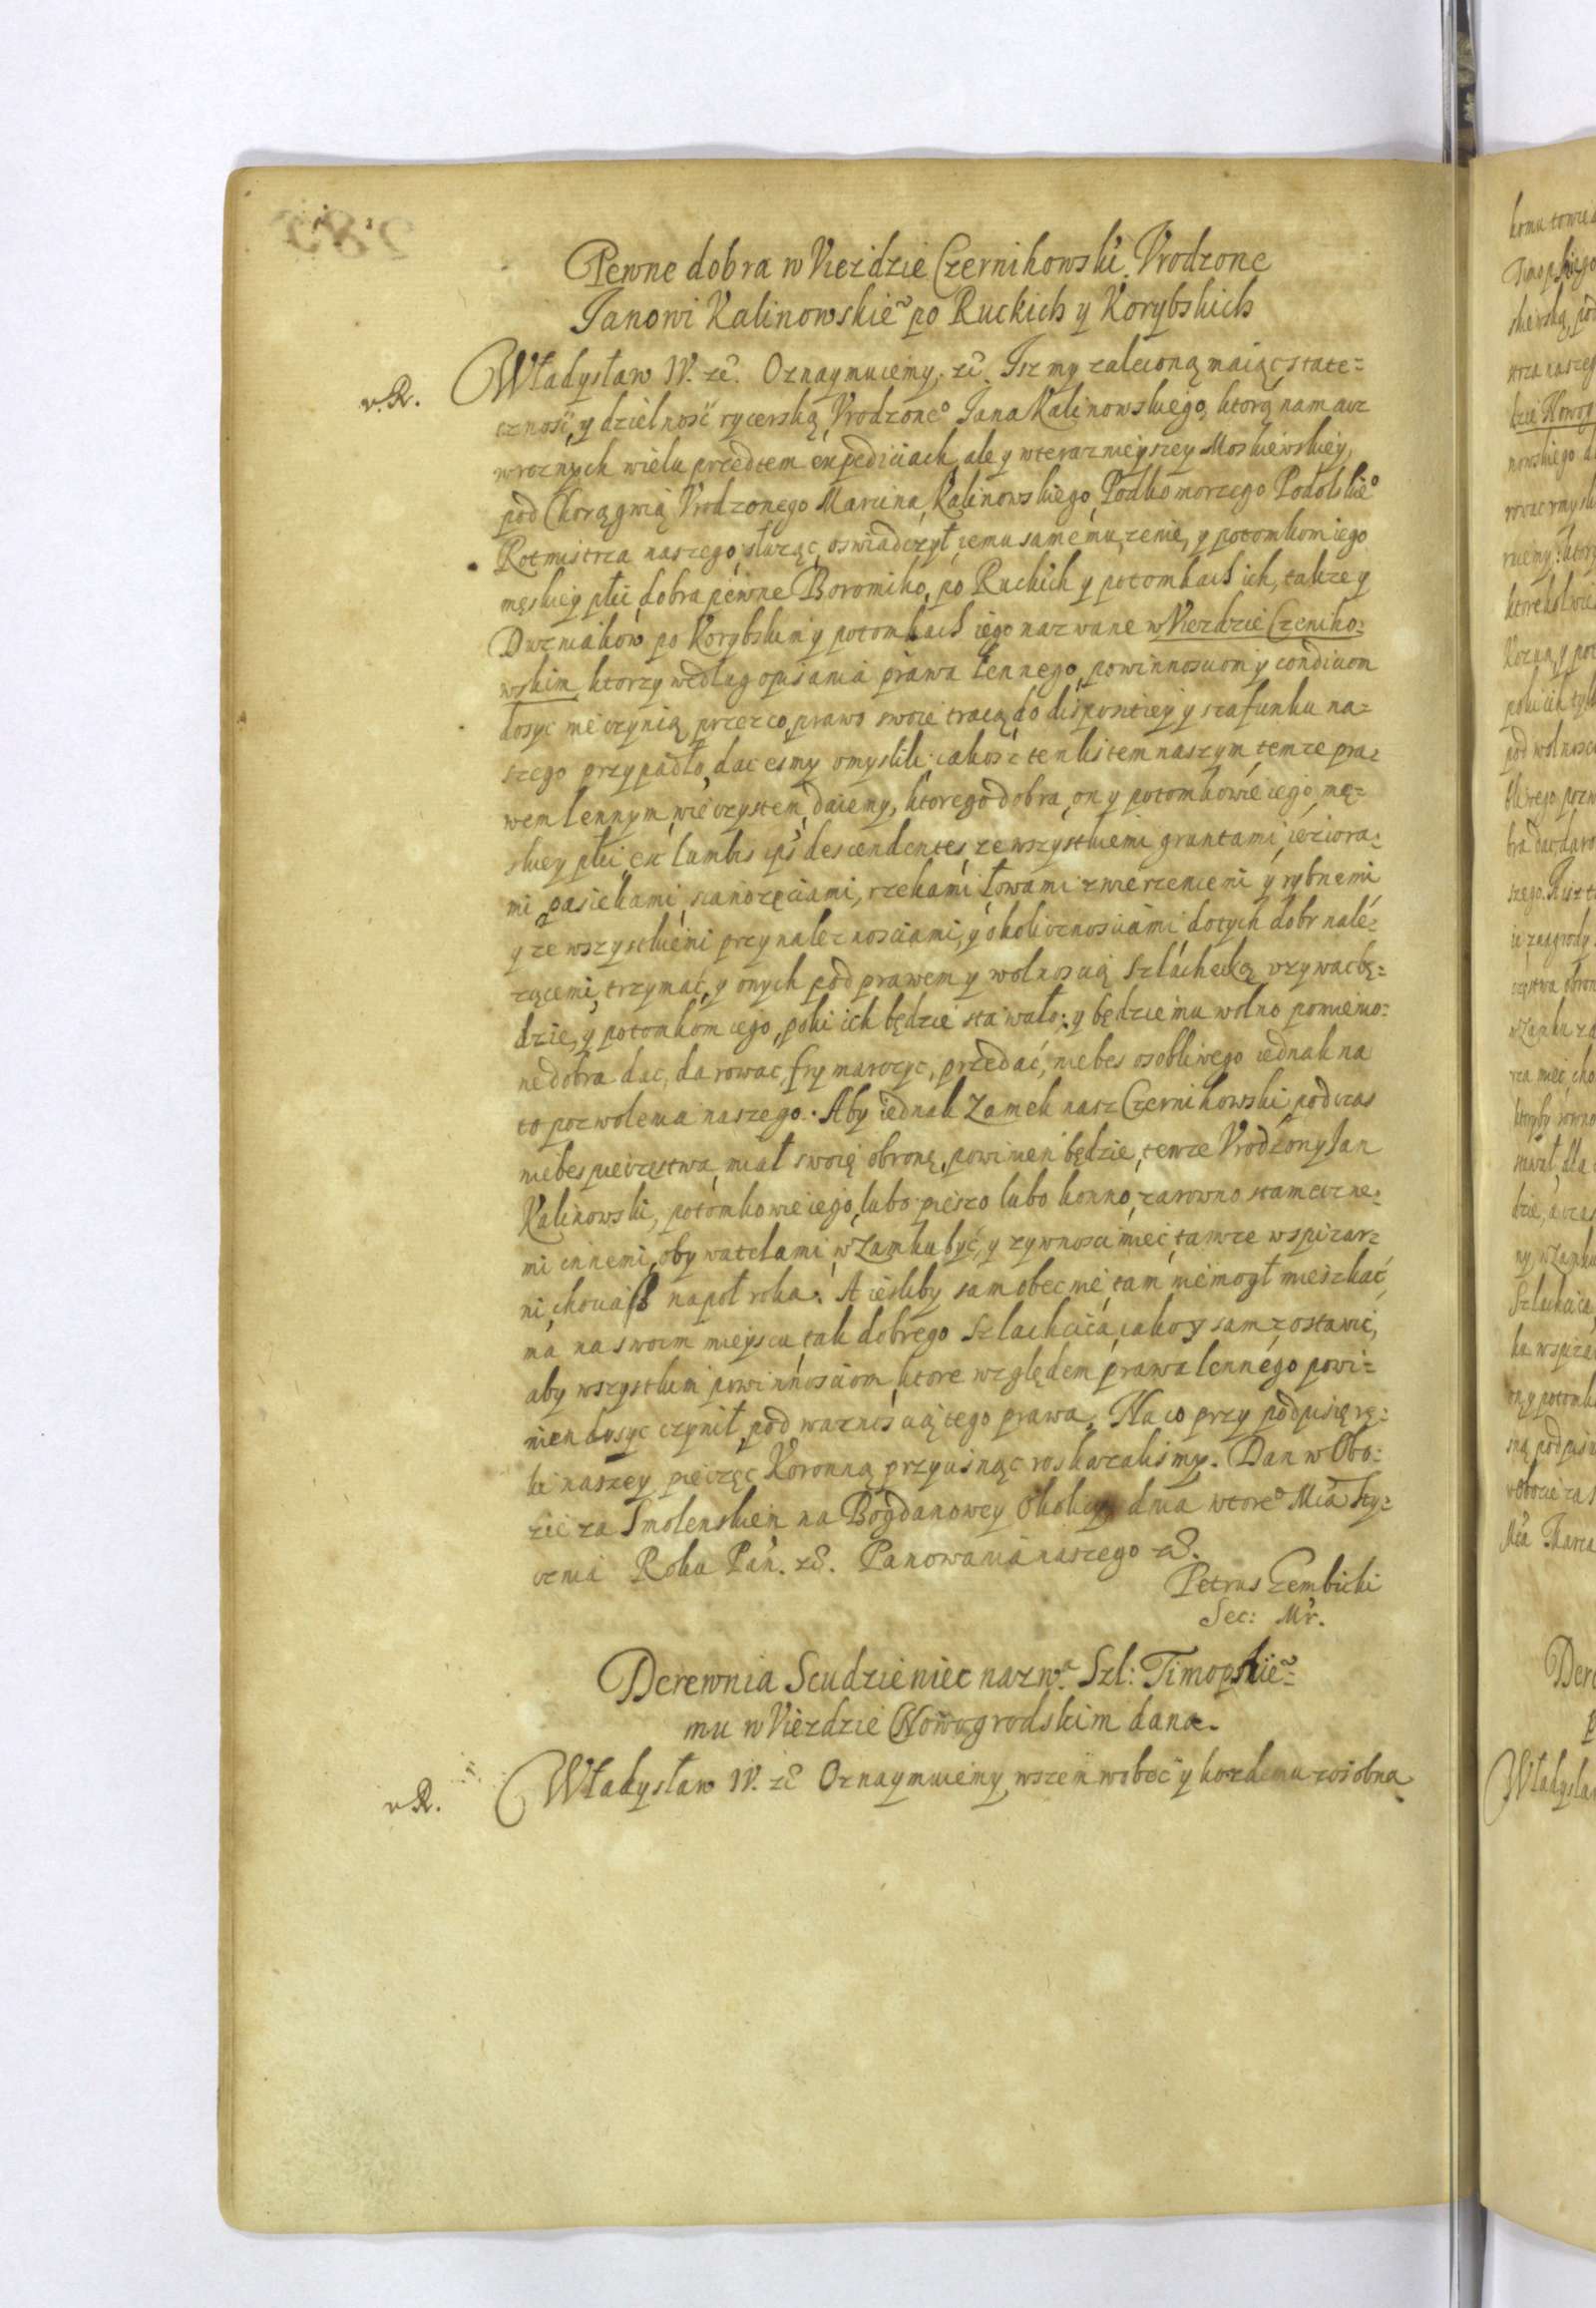 Pewne dobra w Viezdzie Czernihowskĩ. Vrodzone
Janowi Kalinowskiẽ po Ruckich y Korybskich
v. R. Władysław IV. zc̃. Oznaymuiemy, zc̃. Isz my zaleconą maiąc state=
cznosć, y dzielnosć rycerską, Vrodzone° Jana Kalinowskiego, ktorą nam acz
w roznych wielu przedtem expediciach, ale y w terazniejszey Moskiewskiey,
pod Chorągwią Vrodzonego Marcina Kalinowskiego, Podkomorzego Podolskie°
Rotmistrza naszego, służąc, oswiadczył, iemu samemu, zenie, y potomkom iego
męskiey płci, dobra pewne Boromiko, po Ruckich y potomkach ich, takze y
Duzniakow po Korybskim y potomkach iego nazwane w Viezdzie Czerniho=
wskim, ktorzy według opisania prawa Lennego, powinnosciom y condiciom
dosyc nie czynią, przez co, prawo swoie tracą, do dispositiey y szafunku na=
szego przypadło, dac esmy vmyslili, iakosz ten listem naszym, temze pra=
wem lennym, wieczystem, daiemy, ktorego dobra, on y potomkowie iego, mę=
skiey płci, ex lumbis ips̃ descendentes, ze wszystkiemi gruntami, ieziora=
mi, pasiekami, sianozęciami, rzekami, łowami zwierzeniemi y rybnemi
y ze wszystkiemi przynaleznosciami, y okolicznosciami do tych dobr nale=
zącemi, trzymać, y onych pod prawem y wolnoscią Szlachecką vzywać bę=
dzie, y potomkom iego, poki ich będzie stawało: y będzie mu wolno pomienio=
ne dobra dac, darowac, frymarczyc, przedać, nie bes osobliwego iednak na
to pozwolenia naszego. Aby iednak Zamek nasz Czernihowski podczas
niebespieczęstwa, miał swoię obronę, powinien będzie, tenze Vrodzony Jan
Kalinowski, potomkowie iego, lubo pieszo lubo konno, zarowno s tamecznе=
mi innemi, obywatelami, w Zamku być, y zywnosci mieć, tamze w spizar=
ni, na poł roka. A iesliby sam obecnie, tam nie mogł mieszkać,
ma na swoim mieyscu, tak dobrego Szlachcica, iako y sam zostawić,
aby wszystkim powinnosciom, ktore względem prawa lennego powi=
nien dosyc czynił, pod waznoscią tego prawa. Na co przy podpisie rę=
ki naszey pieczęc Koronną przycisnąc roskazalismy. Dan w Obo=
zie za Smolenskiem na Bogdanowey Okolicy, dnia wtore° Mca Sty=
cznia Roku Pań. zc̃. Panowania naszego zc̃.
Petrus Gembicki
Sec: Mr.
Derewnia Scudzieniec nazwa Szl: Timopskiẽ=
mu w Viezdzie Nowogrodskim dana.
v R. Władysław IV. zc̃ Oznaymuiemy, wszem wobec y kozdemu zosobna